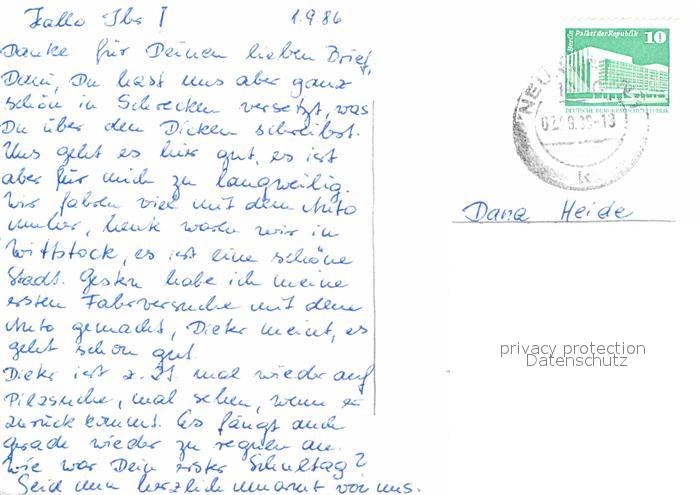 Hallo Ihr! 1.9.86
Danke für Deinen lieben Brief,
Dani, Du hast uns aber ganz
schön in Schrecken versetzt, was
Du über den Dicken schreibst.
Uns geht es hier gut, es ist
aber für mich zu langweilig.
Wir fahren viel mit dem Auto
umher, heute waren wir in
Wittstock, es ist eine schöne
Stadt. Gestern habe ich meine
ersten Fahrversuche mit dem
Auto gemacht, Dieter meint, es
geht schon gut.
Dieter ist z. Zt. mal wieder auf
Pilzsuche, mal sehen, wenn er
zurück kommt. Es fängt auch
gerade wieder zu regnen an.
Wie war Dein erster Schultag?
Seid nun herzlich umarmt von uns.
Berlin Palast der Republik 10
DEUTSCHE DEMOKRATISCHE REPUBLIK
NEU
02.9.86-13
k
Dana Heide
privacy protection
Datenschutz